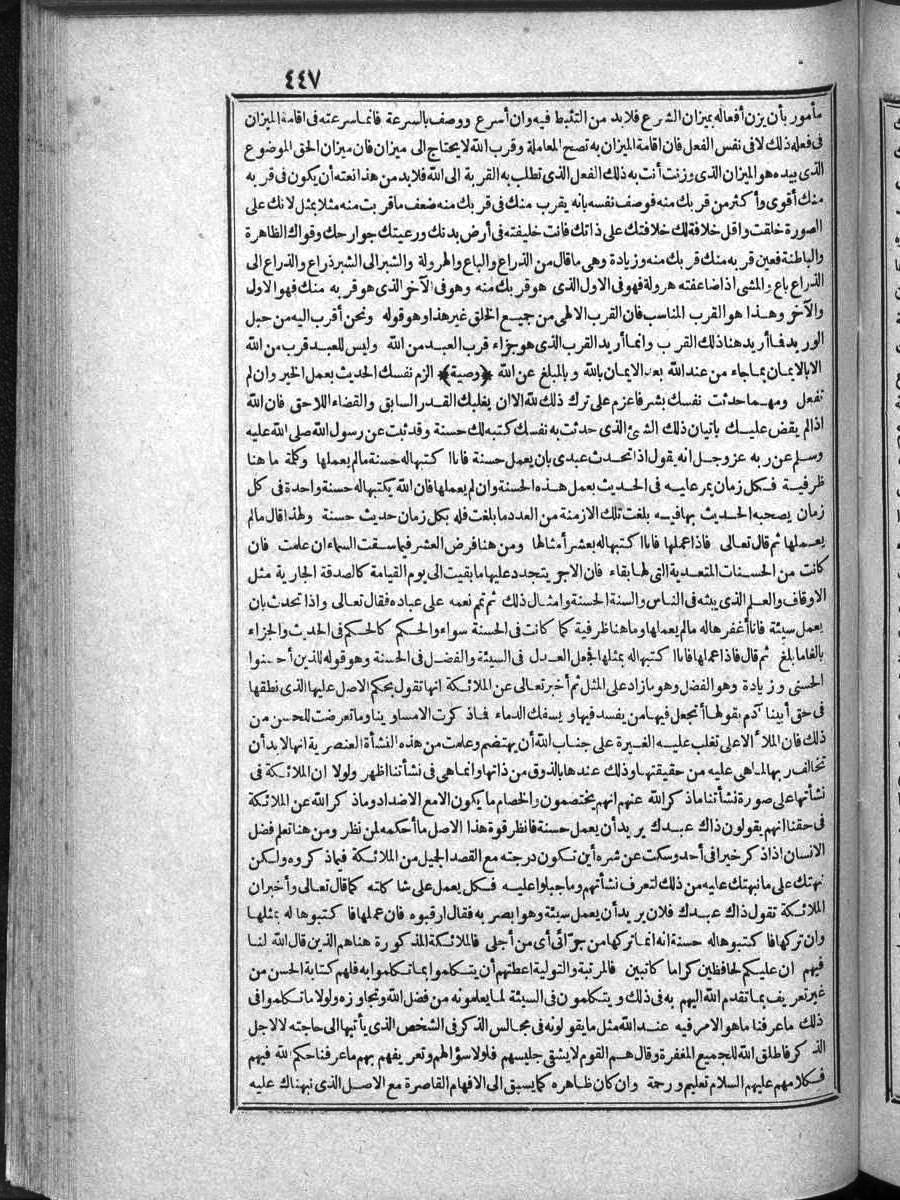 ٤٤٧
مأمور بأن يزن أفعاله بميزان الشرع فلا بد من التثبط فيه وان أسرع ووصف بالسرعة فانما سرعته فى اقامة الميزان
فى فعله ذلك لا فى نفس الفعل فان اقامة الميزان به تصح المعاملة وقرب الله لا يحتاج الى ميزان فان ميزان الحق الموضوع
الذى بيده هو الميزان الذى وزنت أنت به ذلك الفعل الذى تطلب به القربة الى الله فلا بد من هذا نعته أن يكون فى قربه
منك أقوى وأكثر من قربك منه فوصف نفسه بانه يقرب منك فى قربك منه ضعف ما قربت منه مثلا بمثل لانك على
الصورة خلقت واقل خلافة لك خلافتك على ذاتك فانت خليفته فى أرض بدنك ورعيتك جوارحك وقواك الظاهرة
والباطنة فعين قربه منك قربك منه وزيادة وهى ما قال من الذراع والباع والهرولة والشبر الى الشبر ذراع والذراع الى
الذراع باع والمشى اذا ضاعفته هرولة فهو فى الاول الذى هو قربك منه وهو فى الآخر الذى هو قربه منك فهو الاول
والآخر وهذا هو القرب المناسب فان القرب الالهى من جميع الخلق غير هذا وهو قوله ونحن أقرب اليه من حبل
الوريد فما أريد هنا ذلك القرب وانما أريد القرب الذى هو جزاء قرب العبد من الله وليس للعبد قرب من الله
الا بالايمان بما جاء من عند الله بعد الايمان بالله وبالمبلغ عن الله ﴿وصية﴾ الزم نفسك الحديث بعمل الخير وان لم
تفعل ومهما حدثت نفسك بشر فاعزم على ترك ذلك لله الا ان يغلبك القدر السابق والقضاء اللاحق فان الله
اذا لم يقض عليك باتيان ذلك الشئ الذى حدثت به نفسك كتبه لك حسنة وقد ثبت عن رسول الله صلى الله عليه
وسلم عن ربه عز وجل انه يقول اذا تحدث عبدى بان يعمل حسنة فانا اكتبها له حسنة ما لم يعملها وكلة ما هنا
ظرفية فكل زمان يمر عليه فى الحديث بعمل هذه الحسنة وان لم يعملها فان الله يكتبها له حسنة واحدة فى كل
زمان يصحبه الحديث بها فيه بلغت تلك الازمنة من العدد ما بلغت فله بكل زمان حديث حسنة ولهذا قال ما لم
يعملها ثم قال تعالى فاذا عملها فانا اكتبها له بعشر أمثالها ومن هنا فرض العشر فيما سقت السماء ان علمت فان
كانت من الحسنات المتعدية التى لها بقاء فان الاجر يتجدد عليها ما بقيت الى يوم القيامة كالصدقة الجارية مثل
الاوقاف والعلم الذى يبثه فى الناس والسنة الحسنة وامثال ذلك ثم تمم نعمه على عباده فقال تعالى واذا تحدث بان
يعمل سيئة فانا أغفرها له ما لم يعملها وما هنا ظرفية كما كانت فى الحسنة سواء والحكم كالحكم فى الحديث والجزاء
بالغا ما بلغ ثم قال فاذا عملها فانا اكتبها له بمثلها فجعل العدل فى السيئة والفضل فى الحسنة وهو قوله للذين أحسنوا
الحسنى وزيادة وهو الفضل وهو ما زاد على المثل ثم أخبر تعالى عن الملائكة انها تقول بحكم الاصل عليها الذى نطقها
فى حق أبينا آدم بقولها أتجعل فيها من يفسد فيها ويسفك الدماء فما ذكرت الا مساوينا وما تعرضت للحسن من
ذلك فان الملأ الاعلى تغلب عليه الغيرة على جناب الله أن يهتضم وعلمت من هذه النشأة العنصرية انها لا بد أن
تخالف ربها لما هى عليه من حقيقتها وذلك عندها بالذوق من ذاتها وانما هى فى نشأتنا اظهر ولولا ان الملائكة فى
نشأتها على صورة نشأتنا ما ذكر الله عنهم انهم يختصمون والخصام ما يكون الا مع الاضداد وما ذكر الله عن الملائكة
فى حقنا انهم يقولون ذاك عبدك يريد أن يعمل حسنة فانظر قوة هذا الاصل ما أحكمه لمن نظر ومن هنا تعلم فضل
الانسان اذا ذكر خيرا فى أحد وسكت عن شره أين تكون درجته مع القصد الجميل من الملائكة فيما ذكروه ولكن
نبهتك على ما نبهتك عليه من ذلك لتعرف نشأتهم وما جبلوا عليه فكل يعمل على شاكلته كما قال تعالى وأخبر ان
الملائكة تقول ذاك عبدك فلان يريد أن يعمل سيئة وهو ابصر به فقال ارقبوه فان عملها فاكتبوها له بمثلها
وان تركها فاكتبوها له حسنة انه انما تركها من جرّائى أى من أجلى فالملائكة المذكورة هنا هم الذين قال الله لنا
فيهم ان عليكم لحافظين كراما كاتبين فالمرتبة والتولية اعطتهم أن يتكلموا بما تكلموا به فلهم كتابة الحسن من
غير تعريف بما تقدم الله اليهم به فى ذلك ويتكلمون فى السيئة لما يعلمونه من فضل الله وتجاوزه ولولا ما تكلموا فى
ذلك ما عرفنا ما هو الامر فيه عند الله مثل ما يقولونه فى مجالس الذكر فى الشخص الذى يأتيها الى حاجته لا لاجل
الذكر فاطلق الله للجميع المغفرة وقال هم القوم لا يشقى جليسهم فلولا سؤالهم وتعريفهم بهم ما عرفنا حكم الله فيهم
فكلامهم عليهم السلام تعليم ورحمة وان كان ظاهره كما يسبق الى الافهام القاصرة مع الاصل الذى نبهناك عليه